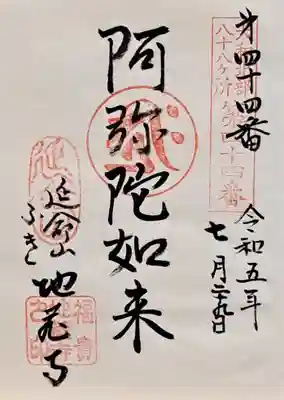 第四十四番
八十八ヶ所第四十四番
令和五年
七月二十九日
阿弥陀如来
延命山
ふき
地蔵寺
福貴
地蔵寺
之印